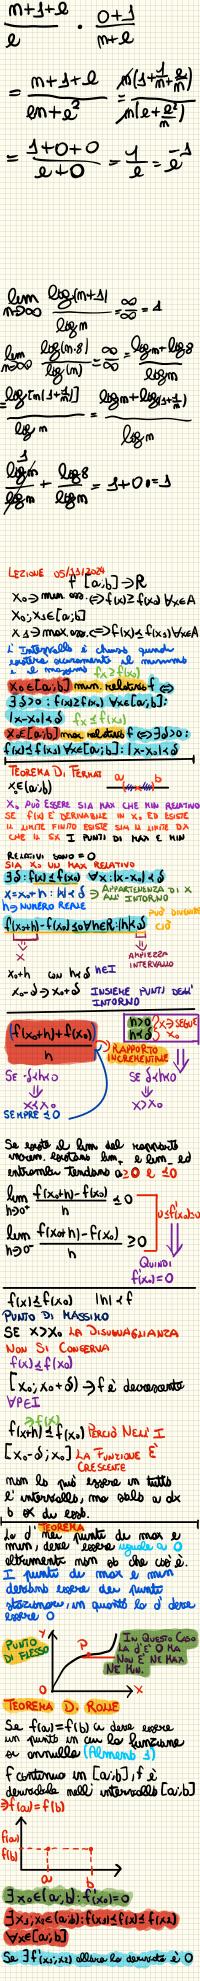 n+1+e / e · 0+1 / n+e
= n+1+e / en+e² = n(1+1/n+e/n) / n(e+e²/n)
= 1+0+0 / e+0 = 1/e = e⁻¹
lim n→∞ log(n+1) / log n = ∞/∞ = 1
lim n→∞ log(n·8) / log(n) = ∞/∞ = log n + log 8 / log n
= log[n(1+1/n)] / log n = log n + log(1+1/n) / log n
log n / log n + log 8 / log n = 1+0 = 1
LEZIONE 05/11/2024
f [a;b] → R
x₀ → min ass. ⟺ f(x) ≥ f(x₀) ∀x∈A
x₀; x₁ ∈ [a;b]
x₁ → max ass. ⟺ f(x) ≤ f(x₁) ∀x∈A
l' Intervallo è chiuso quando
esistere sicuramente il minimo
e il massimo f x ≥ f(x₀)
x₀ ∈ [a;b] min relativo f ⟺
∃ δ>0 : f(x) ≥ f(x₀) ∀x∈[a;b]:
|x-x₀|<δ f x ≤ f(x₀)
x₀∈[a;b] max relativo f ⟺ ∃ δ>0 :
f(x) ≤ f(x₀) ∀x∈[a;b] : |x-x₀|<δ
TEOREMA DI FERMAT
x₀ ∈ (a;b) a b
x₀ PUÒ ESSERE SIA MAX CHE MIN RELATIVO
SE f(x) È DERIVABILE IN x₀ ED ESISTE
IL LIMITE FINITO ESISTE SIA IL LIMITE DX
CHE IL SX I PUNTI DI MAX E MIN
RELATIVI SONO = 0
SIA x₀ UN MAX RELATIVO
∃ δ : f(x) ≤ f(x₀) ∀x : |x-x₀|<δ
x = x₀+h : |h|<δ → APPARTENENZA DI X
h → NUMERO REALE ALL' INTORNO
PUÒ DIVENIRE
f(x₀+h) - f(x₀) ≤ 0 ∀h∈R : |h|<δ CIÒ
x AMPIEZZA
INTERVALLO
x₀+h con h<δ h∈I
x₀-δ → x₀+δ INSIEME PUNTI DELL'
INTORNO
f(x₀+h)+f(x₀) / h h>0 h<δ x → SEGUE x₀
RAPPORTO
INCREMENTALE
SE -δ<h<0 SE δ<h>0
x<x₀ x>x₀
SEMPRE ≤ 0
Se esiste il lim del rapporto
increm. esistono lim₊ e lim₋ ed
entrambi tendono a ≥0 e ≤0
lim h→0⁺ f(x₀+h)-f(x₀) / h ≤ 0
lim h→0⁻ f(x₀+h)-f(x₀) / h ≥ 0
QUINDI
f'(x₀)=0
f(x) ≤ f(x₀) |h|<δ
PUNTO DI MASSIMO
SE x>x₀ LA DISUGUAGLIANZA
NON SI CONSERVA
f(x) ≤ f(x₀)
[x₀; x₀+δ) → f è decrescente
∀P∈I
f(x+h) ≤ f(x₀) PERCIÒ NELL' I
[x₀-δ; x₀] LA FUNZIONE È
CRESCENTE
non lo può essere in tutto
l' intervallo, ma solo a dx
o sx di esso.
TEOREMA
La d' nei punti di max e
min, deve essere uguale a 0
altrimenti non so che cos'è.
I punti di max e min
devono essere dei punti
stazionari, in quanto la d' deve
essere 0
PUNTO DI FLESSO Y P X O
IN QUESTO CASO
LA d' È 0 MA
NON È NE MAX
NE MIN.
TEOREMA DI ROLLE
Se f(a)=f(b) ci deve essere
un punto in cui la funzione
si annulla (Almeno 1)
f continua in [a;b], f è
derivabile nell' intervallo (a;b)
⇒ f(a)=f(b)
f(a)
f(b)
a b
∃ x₀∈(a;b) : f'(x₀)=0
∃ x₁;x₂∈(a;b) : f(x₁) ≤ f(x) ≤ f(x₂)
∀x∈[a;b]
Se ∃ f'(x₁;x₂) allora la derivata è 0